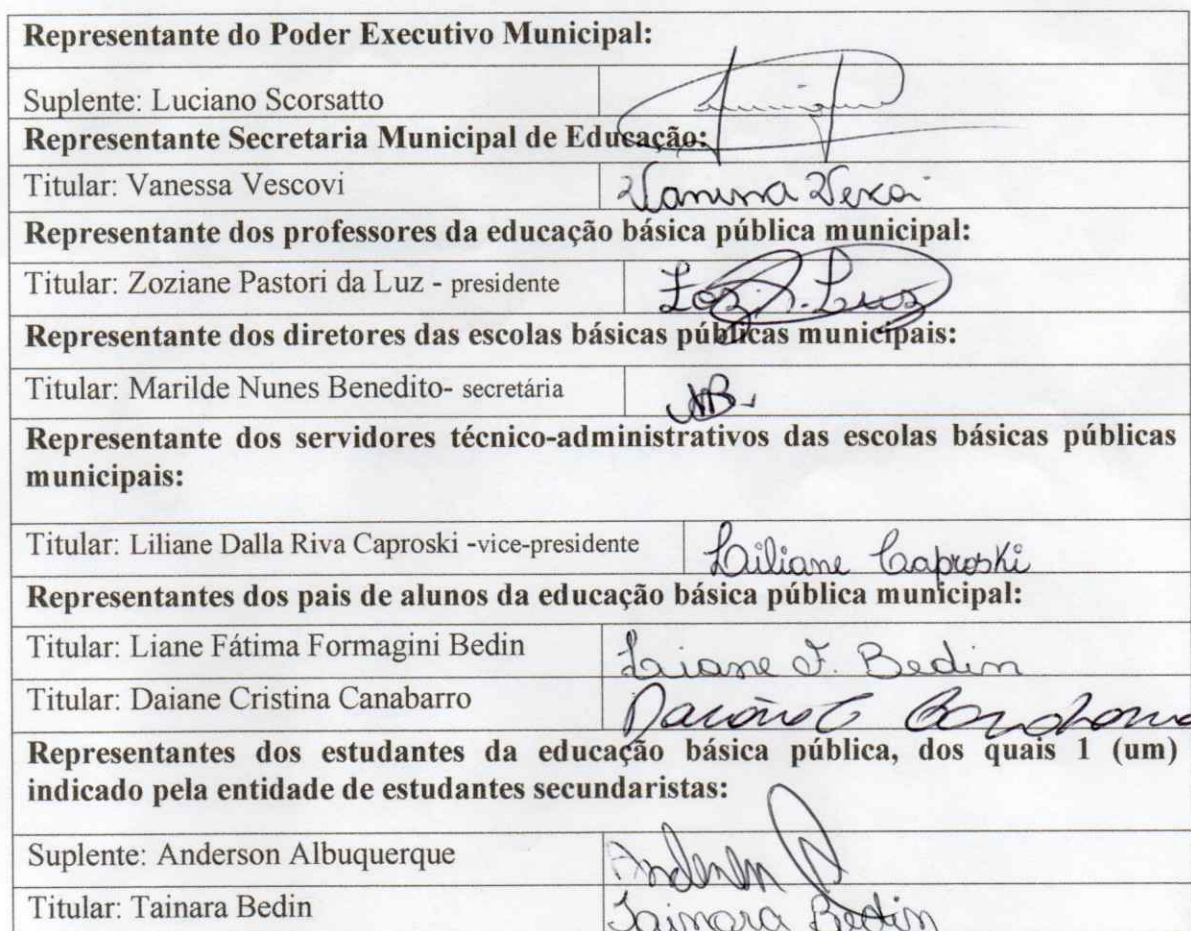 Representante do Poder Executivo Municipal:
Suplente: Luciano Scorsatto
Representante Secretaria Municipal de Educação:
Titular: Vanessa Vescovi
Representante dos professores da educação básica pública municipal:
Titular: Zoziane Pastori da Luz - presidente Luz
Representante dos diretores das escolas básicas públicas municipais:
Titular: Marilde Nunes Benedito- secretária
Representante dos servidores técnico-administrativos das escolas básicas públicas
municipais:
Titular: Liliane Dalla Riva Caproski -vice-presidente Liliane Caproski
Representantes dos pais de alunos da educação básica pública municipal:
Titular: Liane Fátima Formagini Bedin Liane F. Bedin
Titular: Daiane Cristina Canabarro
Representantes dos estudantes da educação básica pública, dos quais 1 (um)
indicado pela entidade de estudantes secundaristas:
Suplente: Anderson Albuquerque
Titular: Tainara Bedin Tainara Bedin